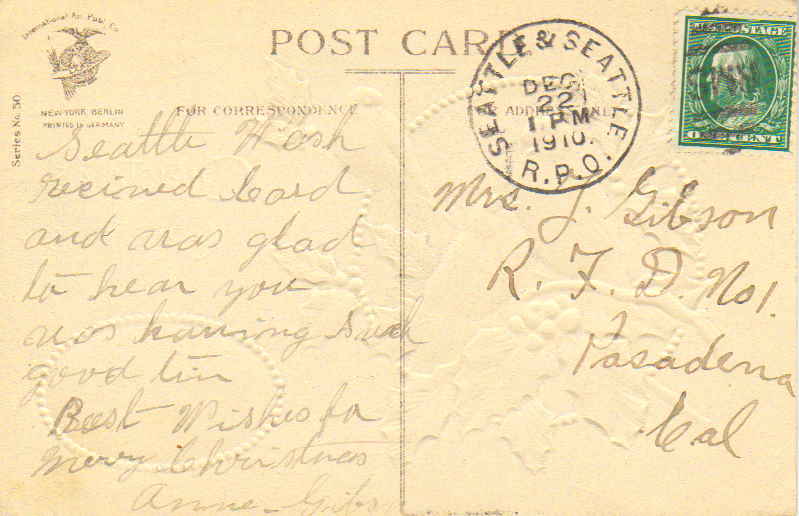 International Art Publ. Co.
NEW-YORK BERLIN
PRINTED IN GERMANY
Series No. 50
POST CARD
FOR CORRESPONDENCE
SEATTLE & SEATTLE
DEC
22
1 PM
1910.
R.P.O.
Seattle Wash
recived Card
and was glad
to hear you
was having such
good tim
Best Wishes for
Merry Christmas
Anna Gibs
Mrs. J. Gibson
R. F. D. No 1.
Pasadena
Cal